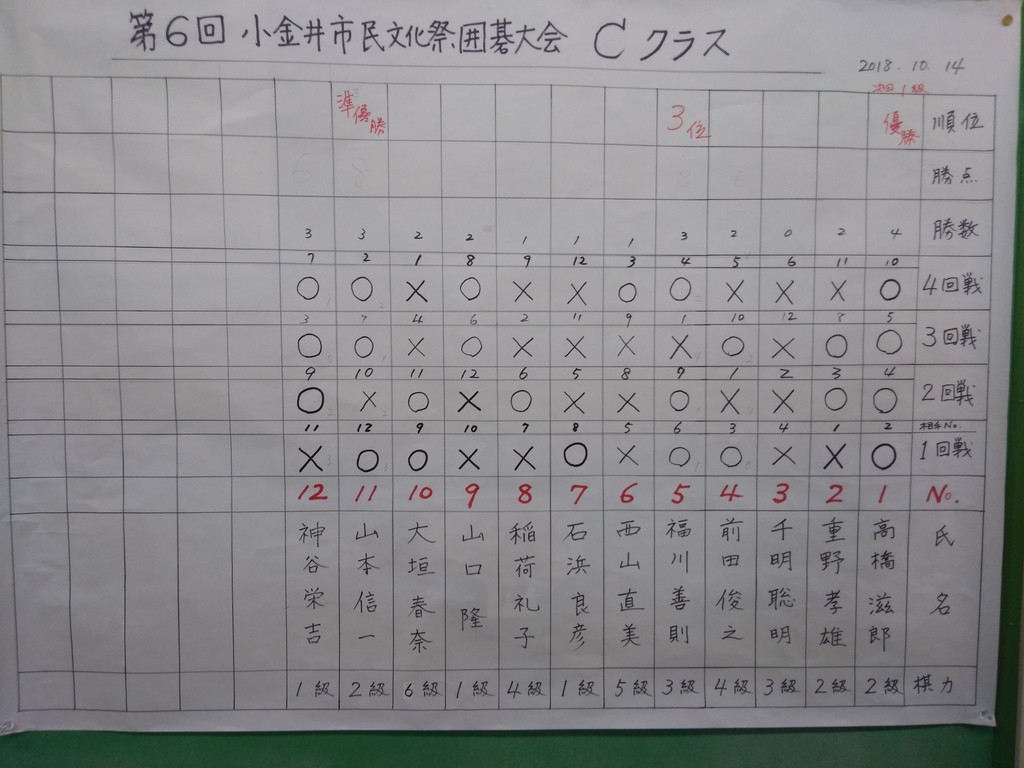 第6回 小金井市民文化祭囲碁大会 Cクラス
2018.10.14
準優勝 3位 優勝 順位
6 8 勝点
3 3 2 2 1 1 1 3 2 0 2 4 勝数
7 2 1 8 9 12 3 4 5 6 11 10
○ ○ × ○ × × ○ ○ × × × ○ 4回戦
3 7 4 6 2 11 9 1 10 12 8 5
○ ○ × ○ × × × × ○ × ○ ○ 3回戦
9 10 11 12 6 5 8 7 1 2 3 4
○ × ○ × ○ × × ○ × × ○ ○ 2回戦
11 12 9 10 7 8 5 6 3 4 1 2 相手No.
× ○ ○ × × ○ × ○ ○ × × ○ 1回戦
12 11 10 9 8 7 6 5 4 3 2 1 No.
氏名
高橋滋郎
重野孝雄
千明聡明
前田俊之
福川善則
西山直美
石浜良彦
稲荷礼子
山口隆
大垣春奈
山本信一
神谷栄吉
1級 2級 6級 1級 4級 1級 5級 3級 4級 3級 2級 2級 棋力